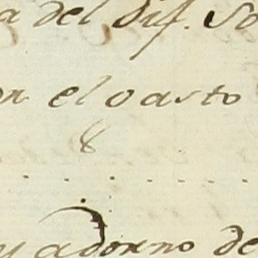 a del dif. So
el gasto
8
y adorno de